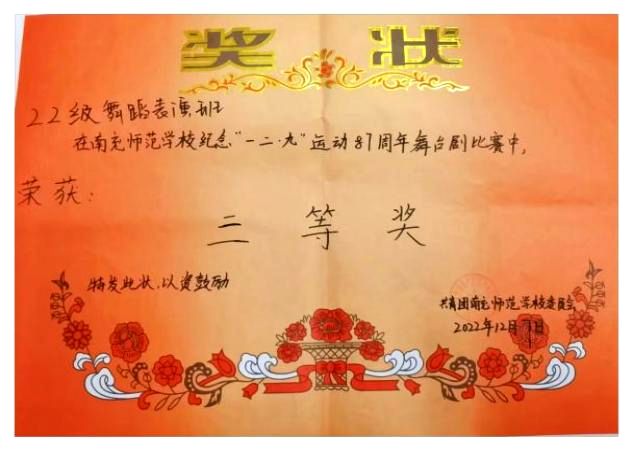 奖 状
22级舞蹈表演班
在南充师范学校纪念“一二·九”运动87周年舞台剧比赛中,
荣获:
三等奖
特发此状,以资鼓励
共青团南充师范学校委员会
2022年12月 日